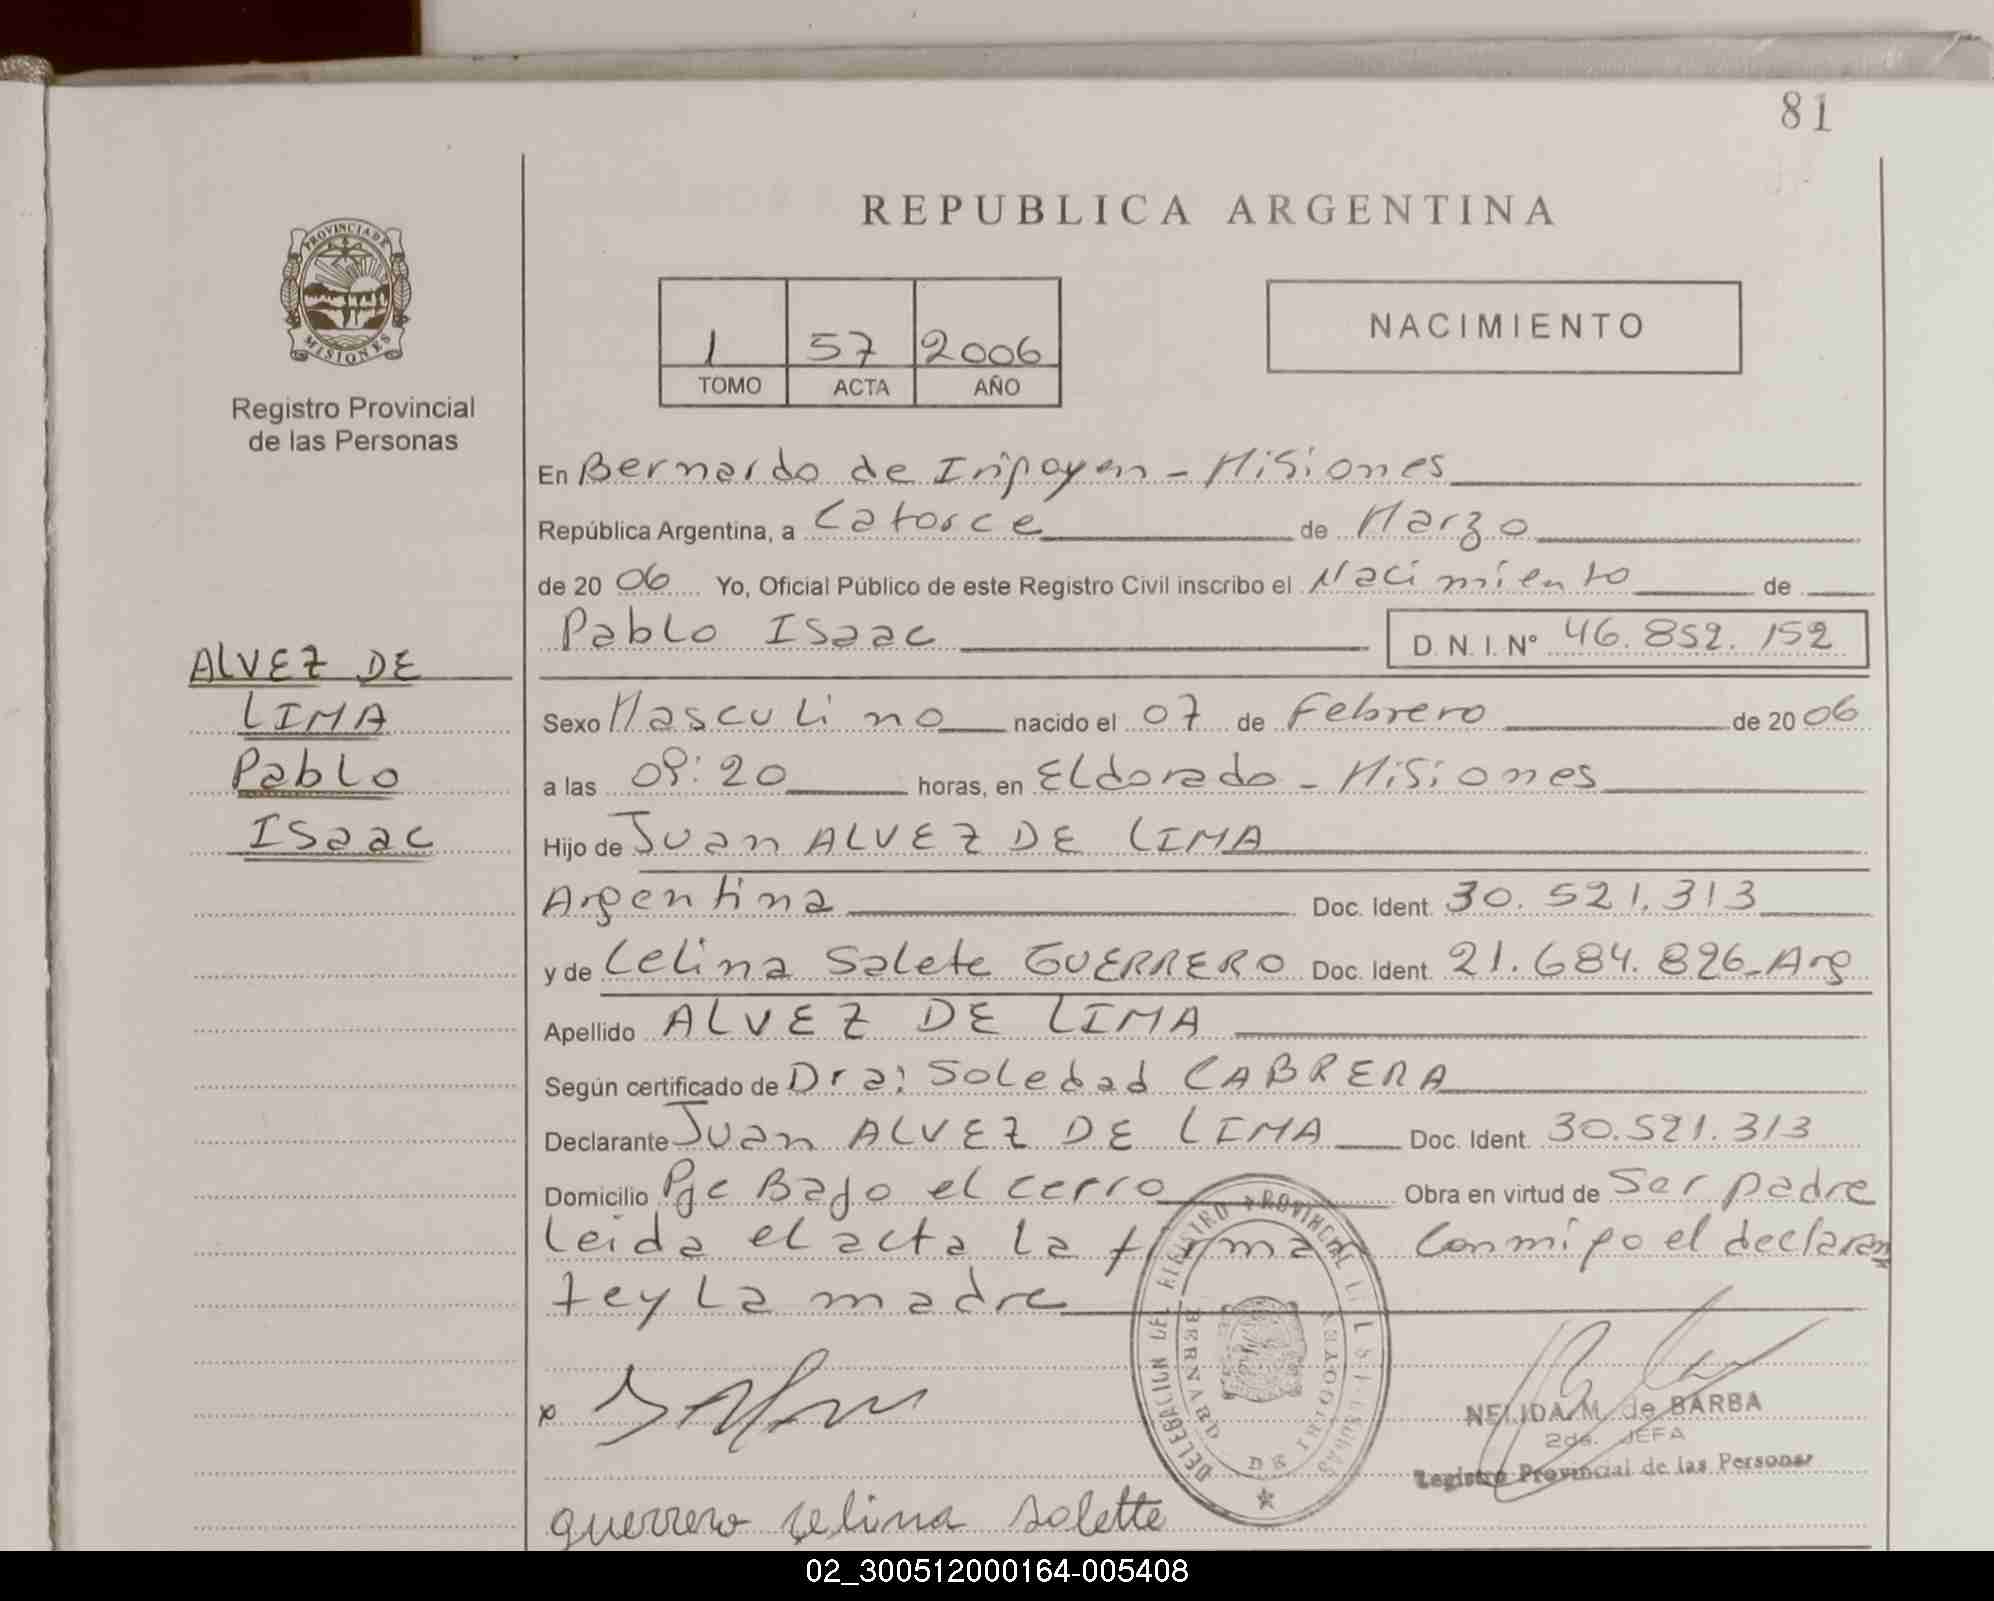 81
PROVINCIA DE
MISIONES
Registro Provincial
de las Personas
REPUBLICA ARGENTINA
1 57 2006
TOMO ACTA AÑO
NACIMIENTO
En Bernardo de Irigoyen - Misiones
República Argentina, a Catorce de Marzo
de 20 06 Yo, Oficial Público de este Registro Civil inscribo el Nacimiento de
Pablo Isaac D. N. I. N° 46.852.152
ALVEZ DE
LIMA
Pablo
Isaac
Sexo Masculino nacido el 07 de Febrero de 20 06
a las 09:20 horas, en Eldorado - Misiones
Hijo de Juan ALVEZ DE LIMA
Argentina Doc. Ident. 30.521.313
y de Celina Salete GUERRERO Doc. Ident. 21.684.826-Arg
Apellido ALVEZ DE LIMA
Según certificado de Dra: Soledad CABRERA
Declarante Juan ALVEZ DE LIMA Doc. Ident. 30.521.313
Domicilio Pje Bajo el cerro Obra en virtud de Ser padre
Leida el acta la firman Conmigo el declaran
te y La madre
DELEGACION DEL REGISTRO PROVINCIAL DE LAS PERSONAS
BERNARDO DE IRIGOYEN
NELIDA M. de BARBA
2da. JEFA
Registro Provincial de las Personas
guerrero selina solette
02_300512000164-005408